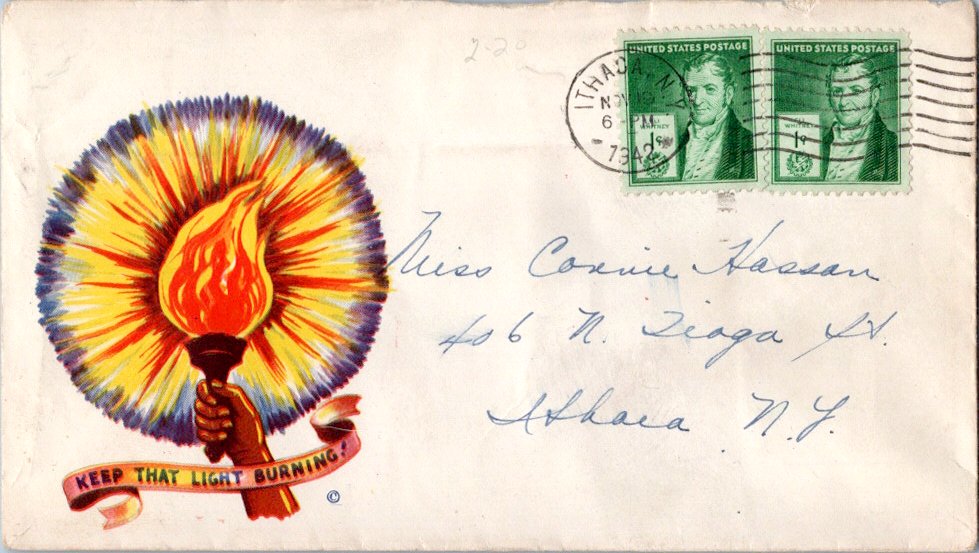 2-20
UNITED STATES POSTAGE
UNITED STATES POSTAGE
ITHACA, N.Y.
NOV
6 PM
1942
ELI WHITNEY
1¢
WHITNEY
1¢
Miss Connie Hassan
406 N. Tioga St.
Ithaca N.Y.
KEEP THAT LIGHT BURNING!
©